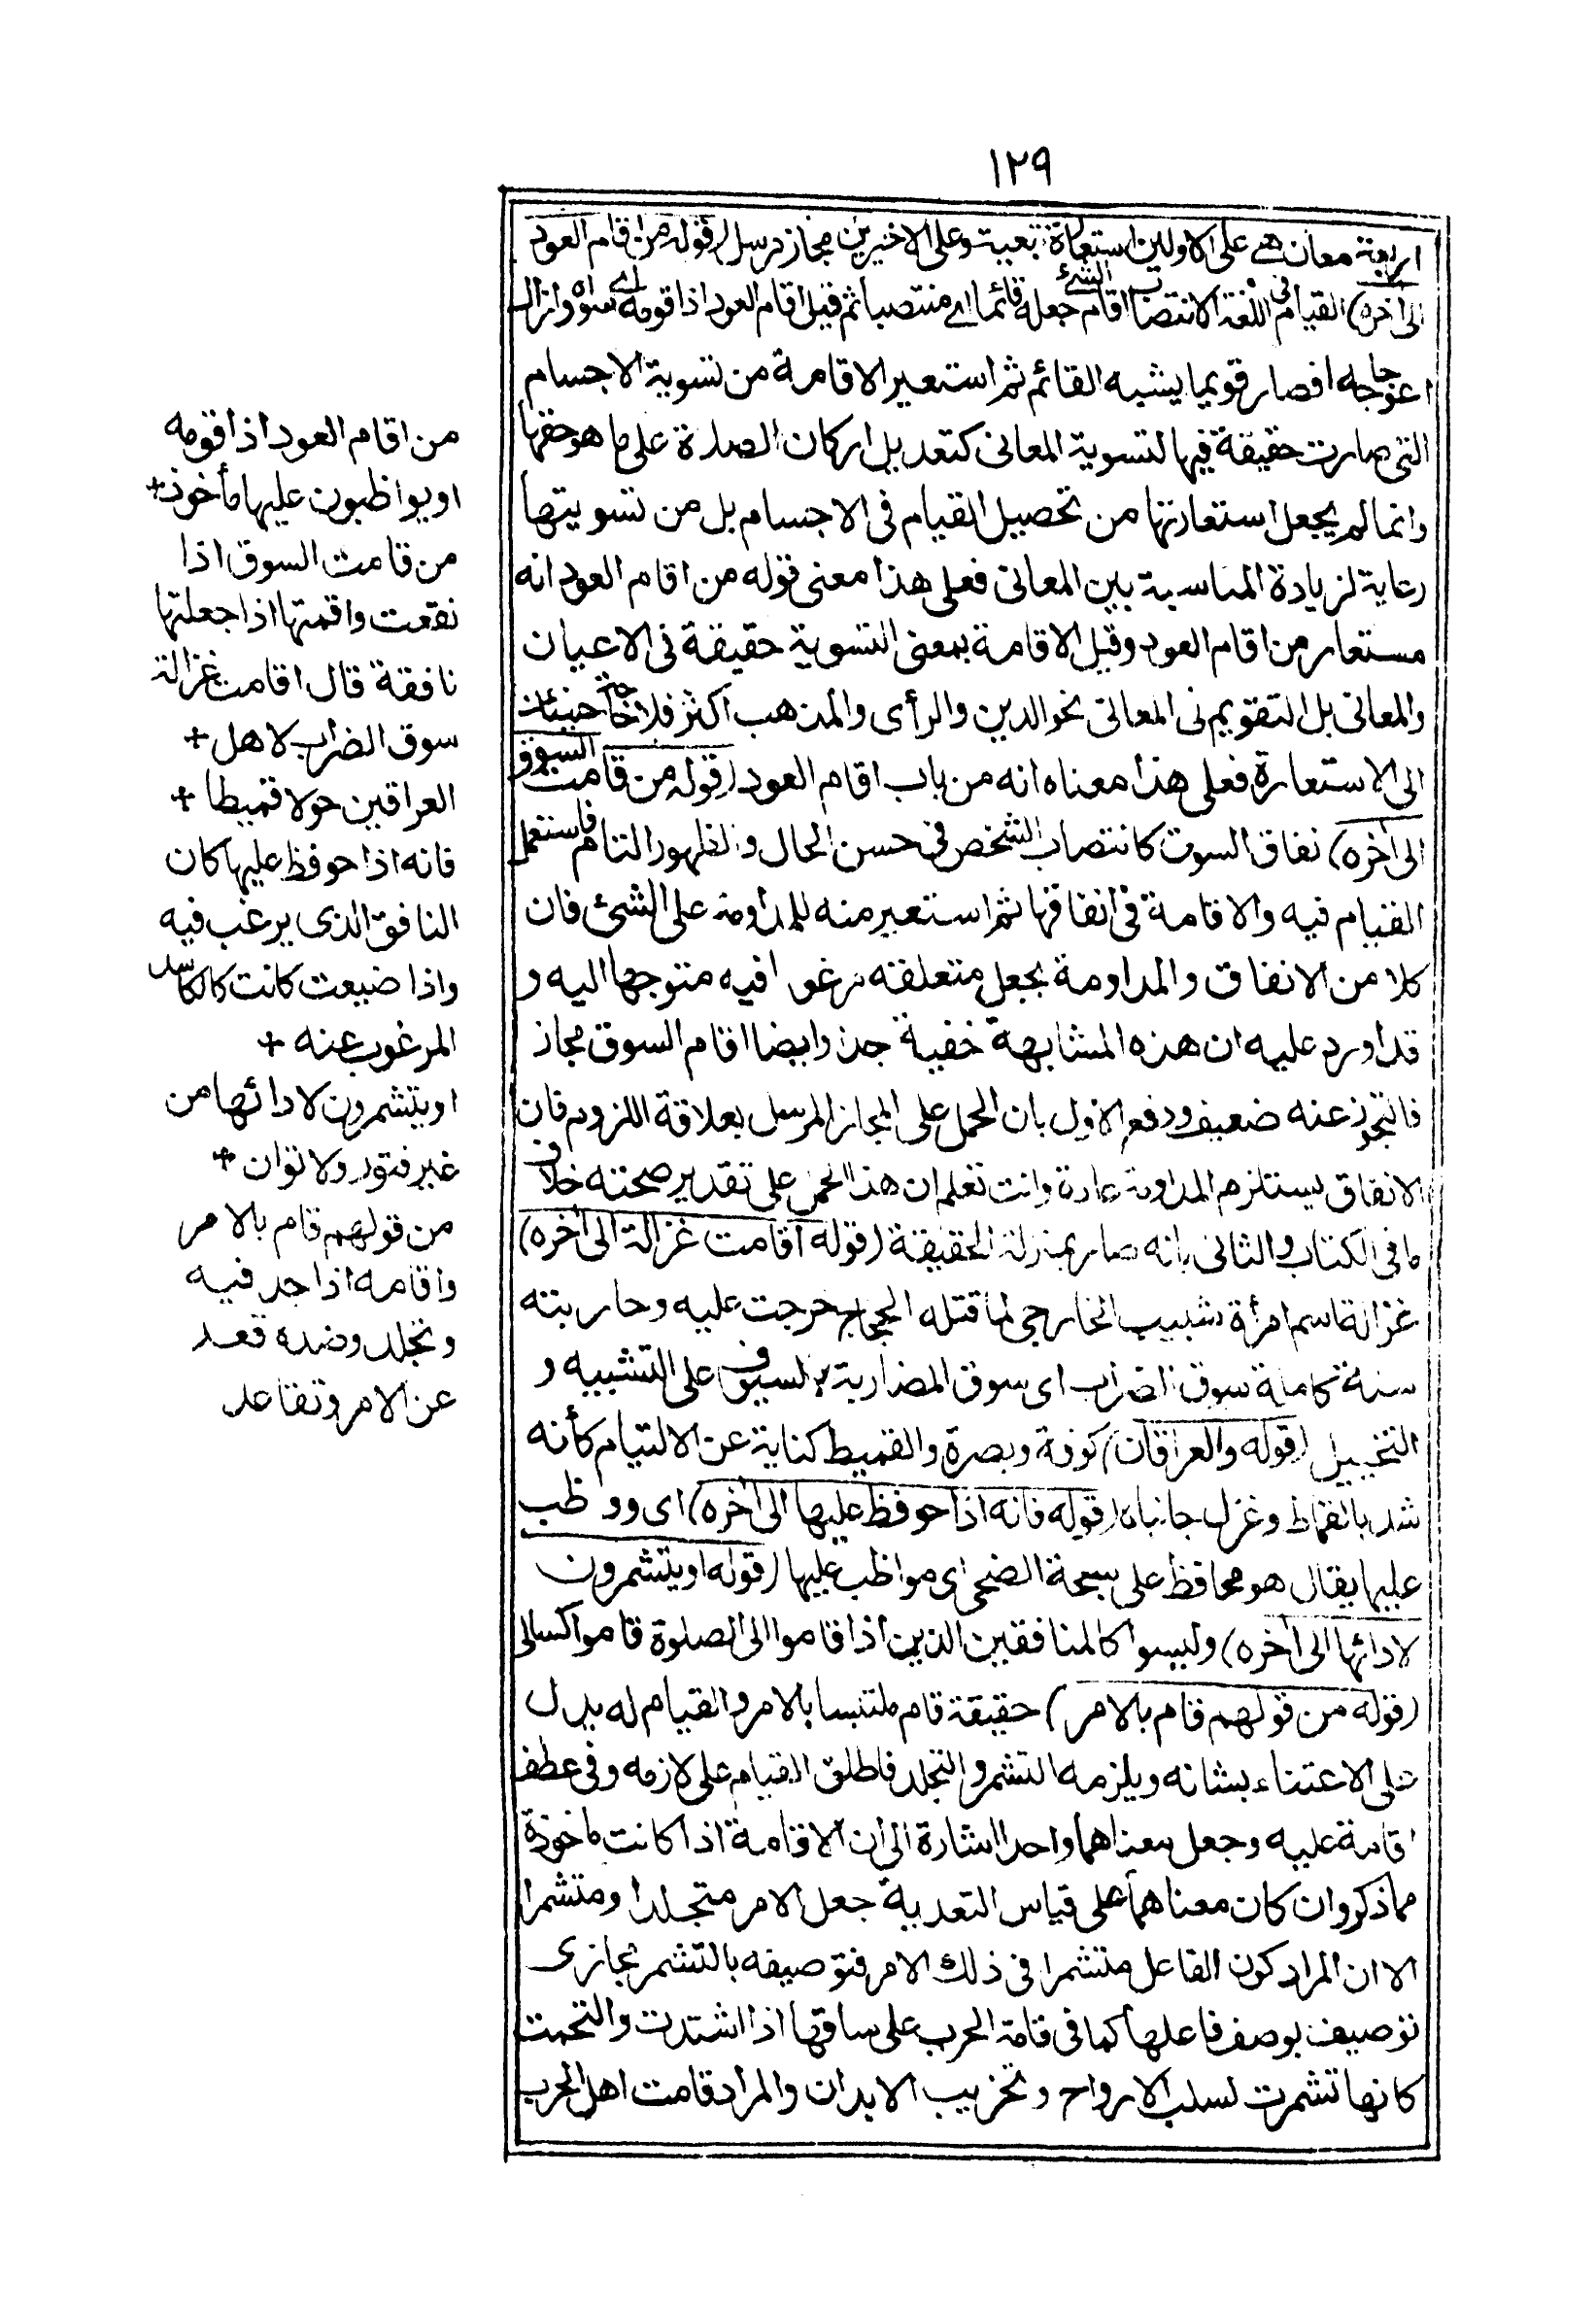 ١٢٩
اربعة معان هے على الاولين استعارة تبعية وعلى الاخيرين مجاز مرسل (قوله من اقام العود
الى اخره) القيام فى اللغة الانتصاب اقام الشئ جعله قائما اے منتصبا ثم قيل اقام العود اذا قومه اے سواه وازال
اعوجاجه افصار قويما يشبه القائم ثم استعير الاقامة من تسوية الاجسام
التى صارت حقيقة فيها لتسوية المعانى كتعديل اركان الصلاة على ما هو حقها
وانما لم يجعل استعارتها من تحصيل القيام فى الاجسام بل من تسويتها
رعاية لزيادة المناسبة بين المعانى فعلى هذا معنى قوله من اقام العود انه
مستعار من اقام العود وقيل الاقامة بمعنى التسوية حقيقة فى الاعيان
والمعانى بل التقويم فى المعانى نحو الدين والرأى والمذهب اكثر فلا حاجة حينئذ
الى الاستعارة فعلى هذا معناه انه من باب اقام العود (قوله من قامت السوق
الى اخره) نفاق السوق كانتصاب الشخص فى حسن الحال والظهور التام فاستعمل
القيام فيه والاقامة فى انفاقها ثم استعير منه للمداومة على الشئ فان
كلا من الانفاق والمداومة يجعل متعلقه مرغوبا فيه متوجها اليه و
قد اورد عليه ان هذه المشابهة خفية جدا وايضا اقام السوق مجاز
فالتجوز عنه ضعيف ودفع الاول بان الحمل على المجاز المرسل بعلاقة اللزوم فان
الانفاق يستلزم المداومة عادة وانت تعلم ان هذا الحمل على تقدير صحته خلاف
ما فى الكتاب والثانى بانه صار بمنزلة الحقيقة (قوله اقامت غزالة الى اخره)
غزالة اسم امرأة شبيب الخارجى لما قتله الحجاج خرجت عليه وحاربته
سنة كاملة سوق الضراب اى سوق المضاربة بالسيوف على التشبيه و
التخييل (قوله والعراقان) كوفة وبصرة والقميط كناية عن الالتيام كأنه
شد بالقماط وغزل جانباه (قوله فانه اذا حوفظ عليها الى اخره) اى ووظب
عليها يقال هو محافظ على سبحة الضحى اى مواظب عليها (قوله او يتشمرون
لادائها الى اخره) وليسوا كالمنافقين الذين اذا قاموا الى الصلوة قاموا كسالى
(قوله من قولهم قام بالامر) حقيقة قام ملتبسا بالامر والقيام له يدل
على الاعتناء بشانه ويلزمه التشمر والتجلد فاطلق القيام على لازمه وفى عطف
اقامة عليه وجعل معناهما واحدا اشارة الى ان الاقامة اذا كانت ماخوذة
مما ذكر وان كان معناهما على قياس التعدية جعل الامر متجلدا ومتشمرا
الا ان المراد كون الفاعل متشمرا فى ذلك الامر فتوصيفه بالتشمر مجازى
توصيف بوصف فاعلها كما فى قامة الحرب على ساقها اذا اشتدت والتحمت
كانها تشمرت لسلب الارواح وتخريب الابدان والمراد قامت اهل الحرب
من اقام العود اذا قومه
او يواظبون عليها مأخوذ+
من قامت السوق اذا
نفقت واقمتها اذا جعلتها
نافقة قال اقامت غزالة
سوق الضراب لاهل+
العراقين حولا قميطا +
فانه اذا حوفظ عليها كان
النافق الذى يرغب فيه
واذا ضيعت كانت كالكاسد
المرغوب عنه +
او يتشمرون لادائها من
غير فتور ولا توان +
من قولهم قام بالامر
واقامه اذا جد فيه
وتجلد وضده قعد
عن الامر وتقاعد